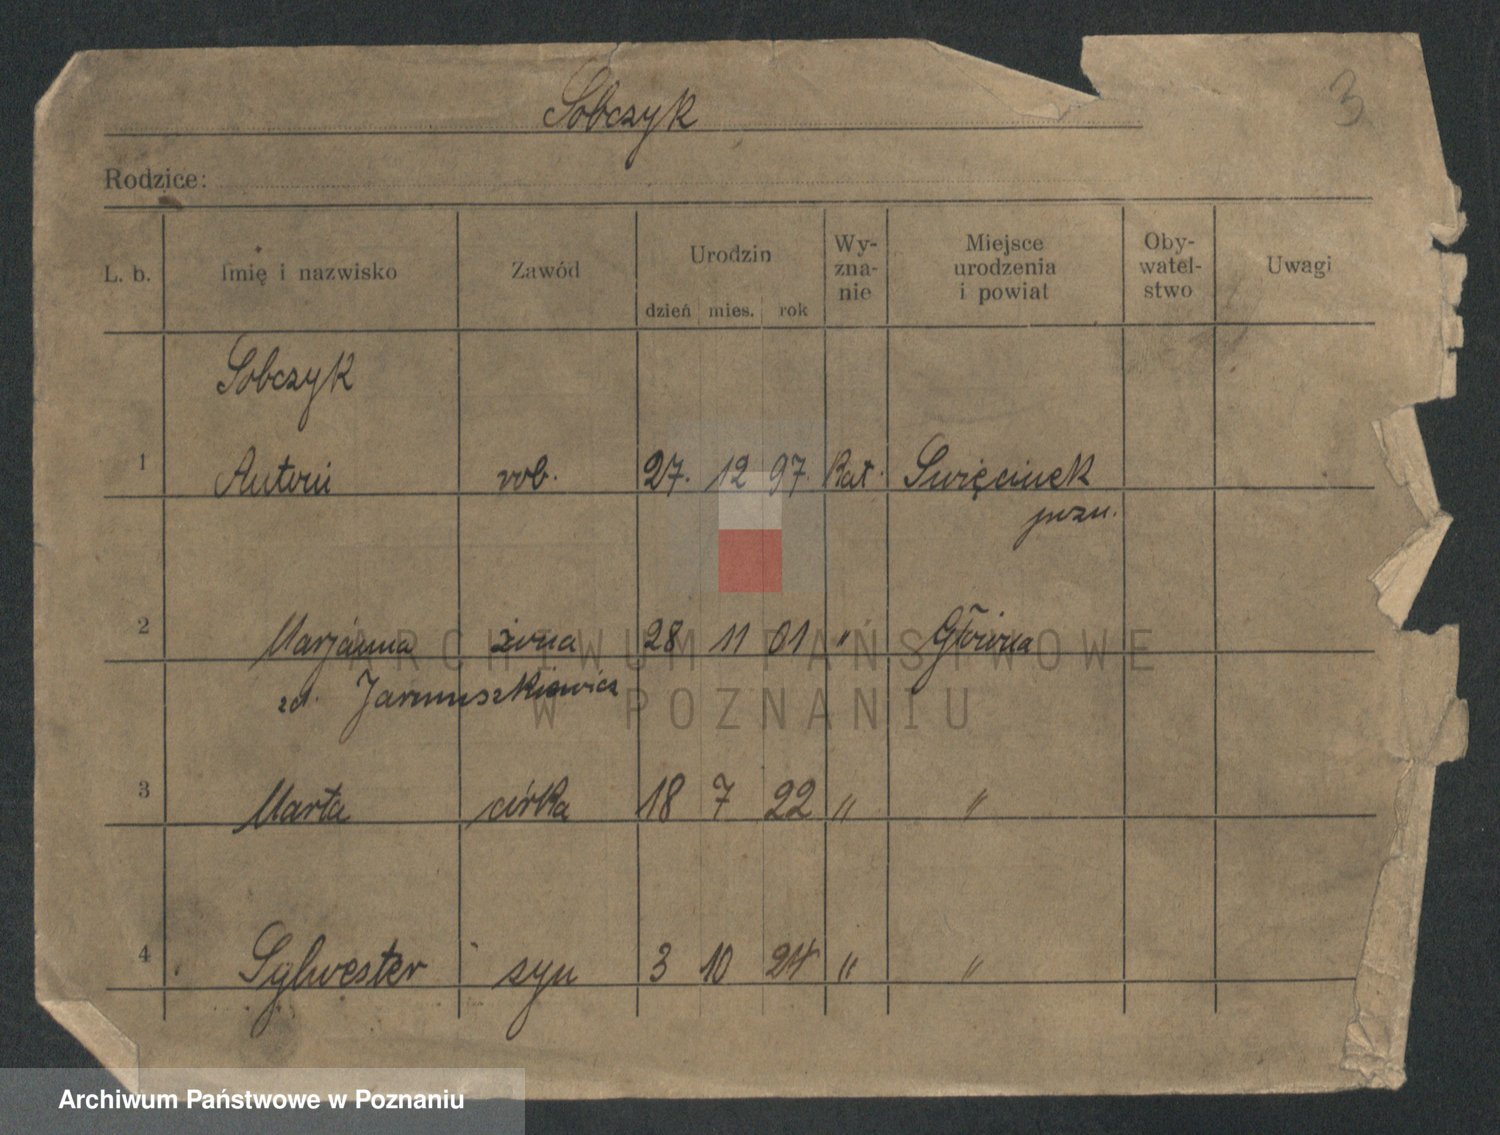 3
Sobczyk
Rodzice:
L. b. Imię i nazwisko Zawód Urodzin dzień mies. rok Wy-zna-nie Miejsce urodzenia i powiat Oby-watel-stwo Uwagi
Sobczyk
1 Antoni rob. 27. 12 97. Kat. Święcinek
pozn.
2 Marjanna żona 28 11 01 " Główna
zd. Jarmuszkiewicz
3 Marta córka 18 7 22 " "
4 Sylwester syn 3 10 24 " "
ARCHIWUM PAŃSTWOWE
W POZNANIU
Archiwum Państwowe w Poznaniu